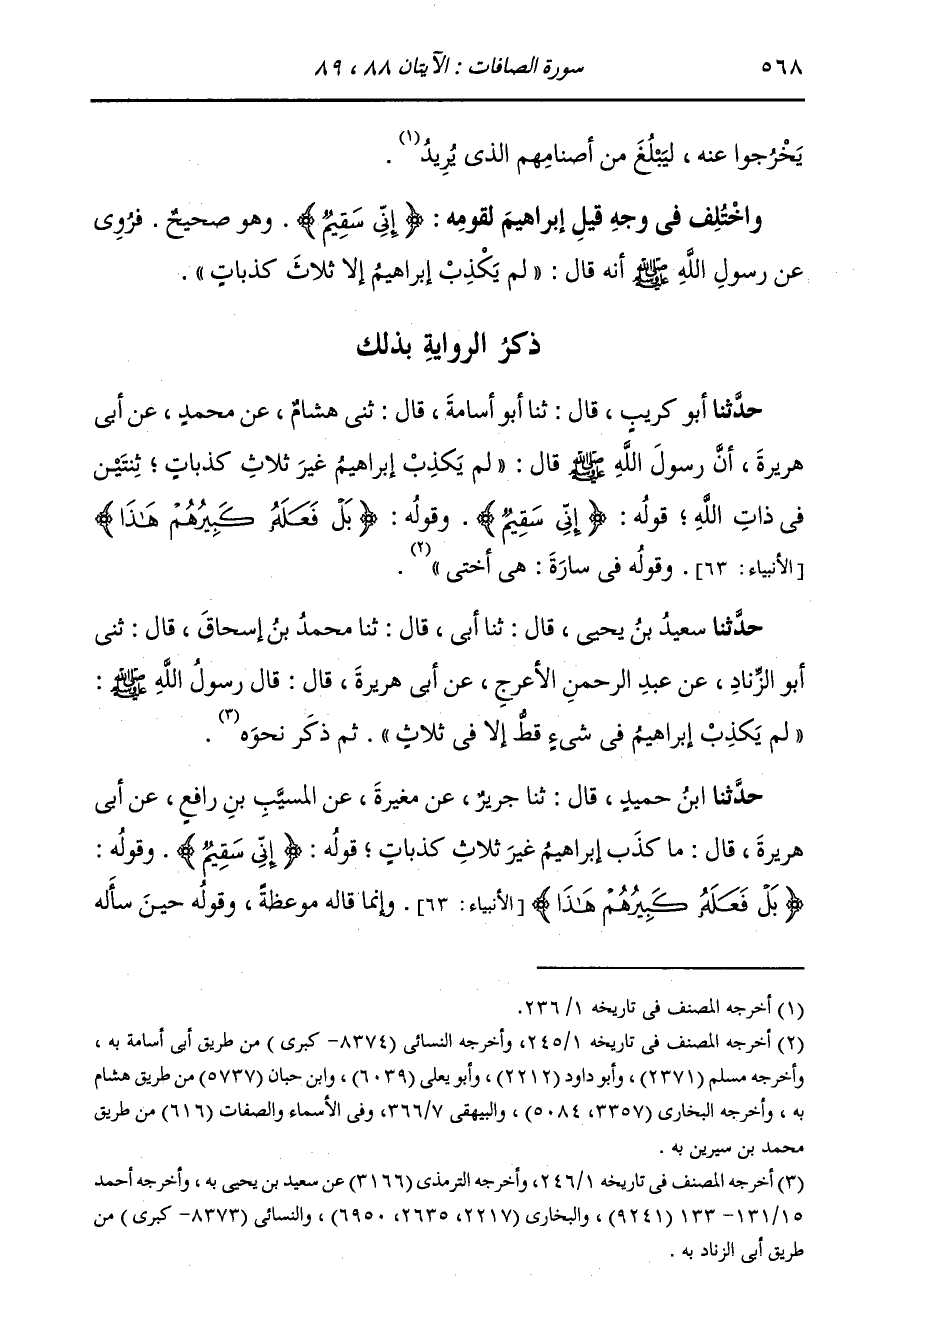 ٥٦٨ سورة الصافات : الآيتان ٨٨ ، ٨٩
يَخْرُجوا عنه ، ليَبْلُغَ من أصنامِهم الذى يُرِيدُ(١) .
واخْتُلِف فى وجهِ قيلِ إبراهيمَ لقومِه : ﴿ إِنِّي سَقِيمٌ ﴾ . وهو صحيحٌ . فرُوِى
عن رسولِ اللَّهِ ﷺ أنه قال : « لم يَكْذِبْ إبراهيمُ إلا ثلاثَ كذباتٍ » .
ذكرُ الروايةِ بذلك
حدَّثنا أبو كريبٍ ، قال : ثنا أبو أسامةَ ، قال : ثنى هشامٌ ، عن محمدٍ ، عن أبى
هريرةَ ، أنَّ رسولَ اللَّهِ ﷺ قال : « لم يَكذِبْ إبراهيمُ غيرَ ثلاثِ كذباتٍ ؛ ثِنتَيْن
فى ذاتِ اللَّهِ ؛ قولُه : ﴿ إِنِّي سَقِيمٌ ﴾ . وقولُه : ﴿ بَلْ فَعَلَهُ كَبِيرُهُمْ هَٰذَا ﴾
[الأنبياء: ٦٣] . وقولُه فى سارَةَ : هى أختى »(٢) .
حدَّثنا سعيدُ بنُ يحيى ، قال : ثنا أبى ، قال : ثنا محمدُ بنُ إسحاقَ ، قال : ثنى
أبو الزِّنادِ ، عن عبدِ الرحمنِ الأعرجِ ، عن أبى هريرةَ ، قال : قال رسولُ اللَّهِ ﷺ :
« لم يَكذِبْ إبراهيمُ فى شىءٍ قطُّ إلا فى ثلاثٍ » . ثم ذكَر نحوَه(٣) .
حدَّثنا ابنُ حميدٍ ، قال : ثنا جريرٌ ، عن مغيرةَ ، عن المسيَّبِ بنِ رافعٍ ، عن أبى
هريرةَ ، قال : ما كذَب إبراهيمُ غيرَ ثلاثِ كذباتٍ ؛ قولُه : ﴿ إِنِّي سَقِيمٌ ﴾ . وقولُه :
﴿ بَلْ فَعَلَهُ كَبِيرُهُمْ هَٰذَا ﴾ [الأنبياء: ٦٣] . وإنما قاله موعظةً ، وقولُه حينَ سأَله
(١) أخرجه المصنف فى تاريخه ١/ ٢٣٦.
(٢) أخرجه المصنف فى تاريخه ٢٤٥/١، وأخرجه النسائى (٨٣٧٤- كبرى ) من طريق أبى أسامة به ،
وأخرجه مسلم (٢٣٧١) ، وأبو داود (٢٢١٢) ، وأبو يعلى (٦٠٣٩) ، وابن حبان (٥٧٣٧) من طريق هشام
به ، وأخرجه البخارى (٣٣٥٧، ٥٠٨٤) ، والبيهقى ٣٦٦/٧، وفى الأسماء والصفات (٦١٦) من طريق
محمد بن سيرين به .
(٣) أخرجه المصنف فى تاريخه ٢٤٦/١، وأخرجه الترمذى (٣١٦٦) عن سعيد بن يحيى به ، وأخرجه أحمد
١٣١/١٥- ١٣٣ (٩٢٤١) ، والبخارى (٢٢١٧، ٢٦٣٥، ٦٩٥٠) ، والنسائى (٨٣٧٣- كبرى ) من
طريق أبى الزناد به .